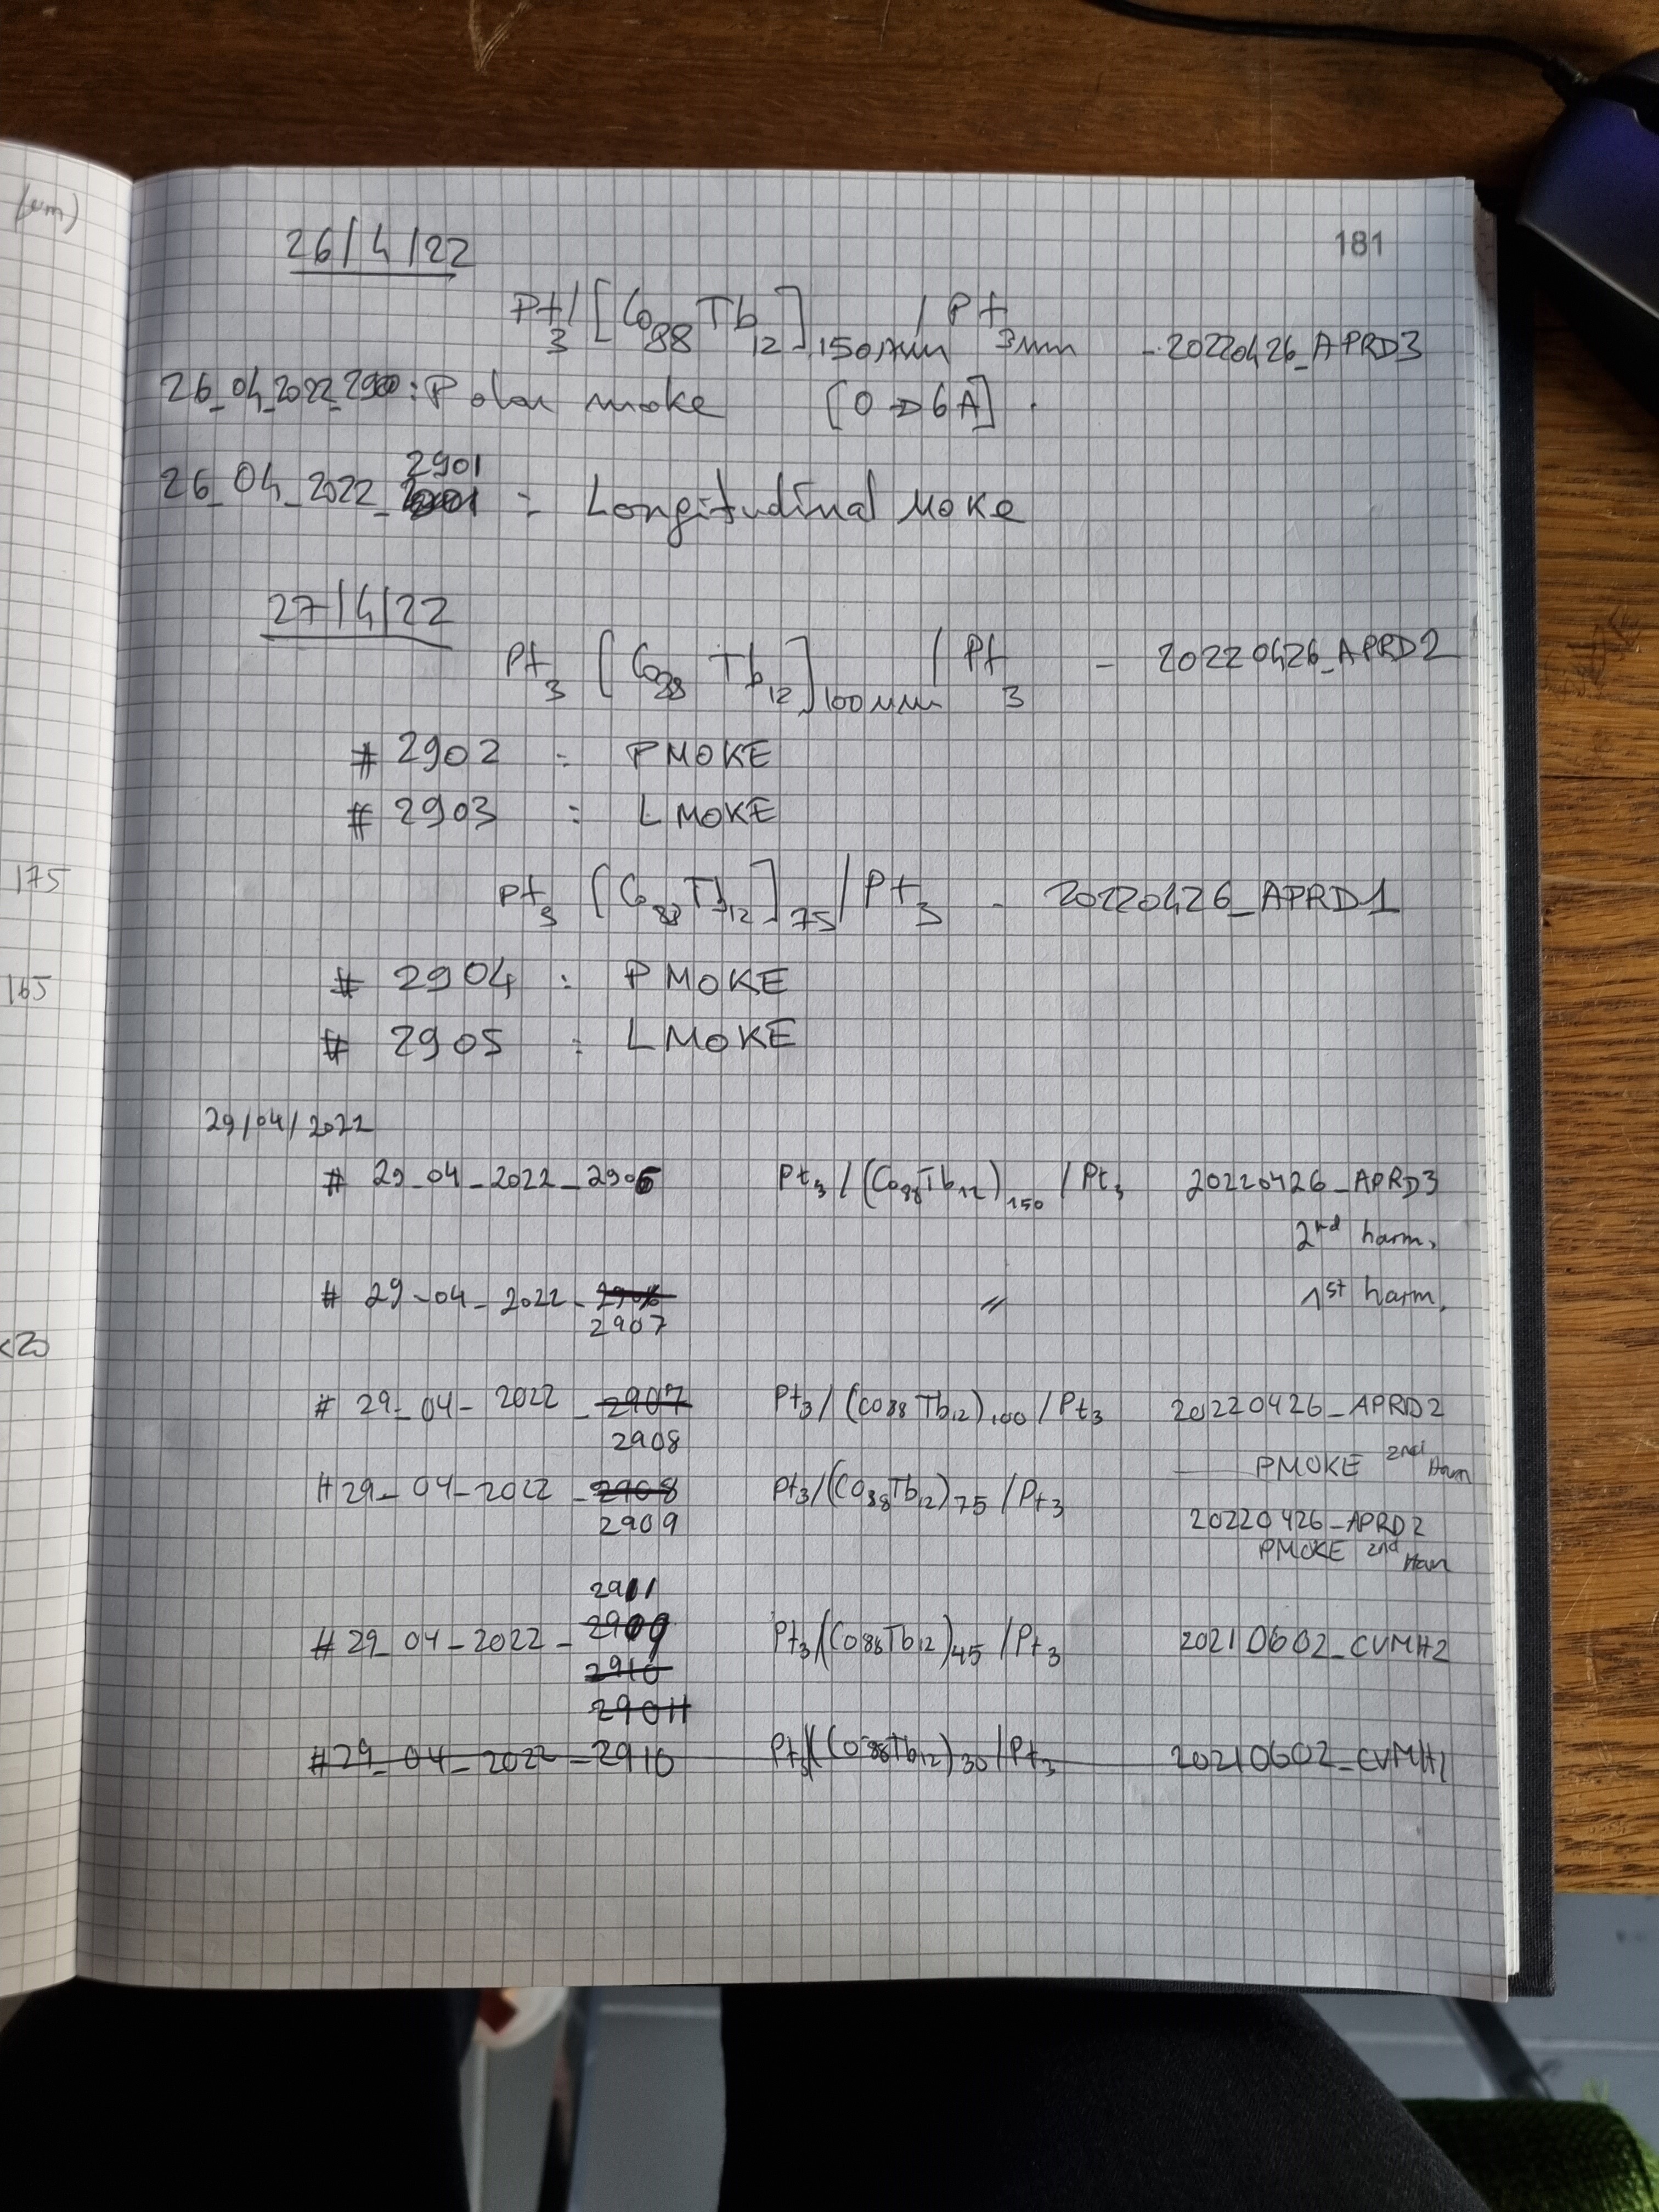 (nm)
181
26/4/22
Pt/3 [Co88 Tb12]150nm / Pt 3nm - 20220426_APRD3
26_04_2022_2900: Polar moke [0→6A].
2901
26_04_2022_ : Longitudinal MOKE
27/4/22
Pt3 [Co88 Tb12]100nm / Pt3 - 20220426_APRD2
# 2902 : PMOKE
# 2903 : LMOKE
175
Pt3 [Co88 Tb12]75 / Pt3 - 20220426_APRD1
165
# 2904 : PMOKE
# 2905 : LMOKE
29/04/2022
# 29_04_2022_2906 Pt3 / (Co88Tb12)150 / Pt3 20220426_APRD3
2nd harm.
# 29-04-2022- 〃 1st harm.
2907
# 29_04-2022_2907 Pt3/(Co88Tb12)100/Pt3 20220426_APRD2
2908
PMOKE 2nd Harm
#29_04-2022_2908 Pt3/(Co88Tb12)75/Pt3
2909
20220426_APRD2
PMOKE 2nd Harm
2911
#29_04-2022-2909 Pt3/(Co88Tb12)45/Pt3 20210602_CVMH2
2910
29011
#29_04_2022_2910 Pt3/(Co88Tb12)30/Pt3 20210602_CVMH1